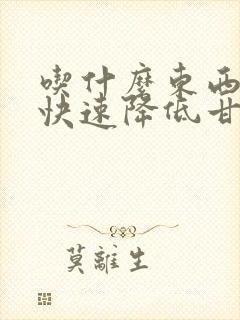 喫什麼東西
快速降低甘
莫離生